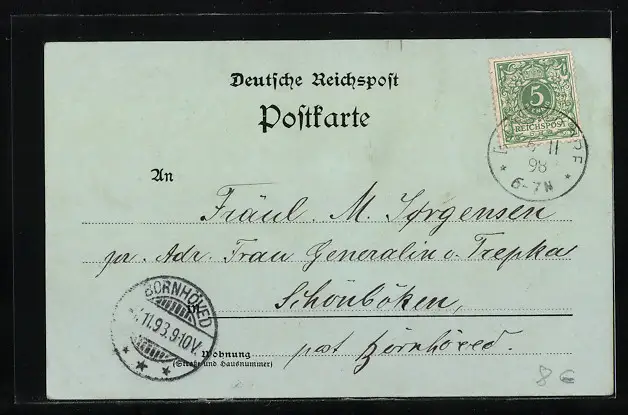 Deutsche Reichspost
Postkarte
5
REICHSPOST
11
98
6-7N
An
Fräul. M. Jørgensen
pr. Adr. Frau Generalin v. Trepka
Schönböken,
post Börnhöved.
BORNHÖVED
11.93.9-10V.
Wohnung
(Straße und Hausnummer)
8 €